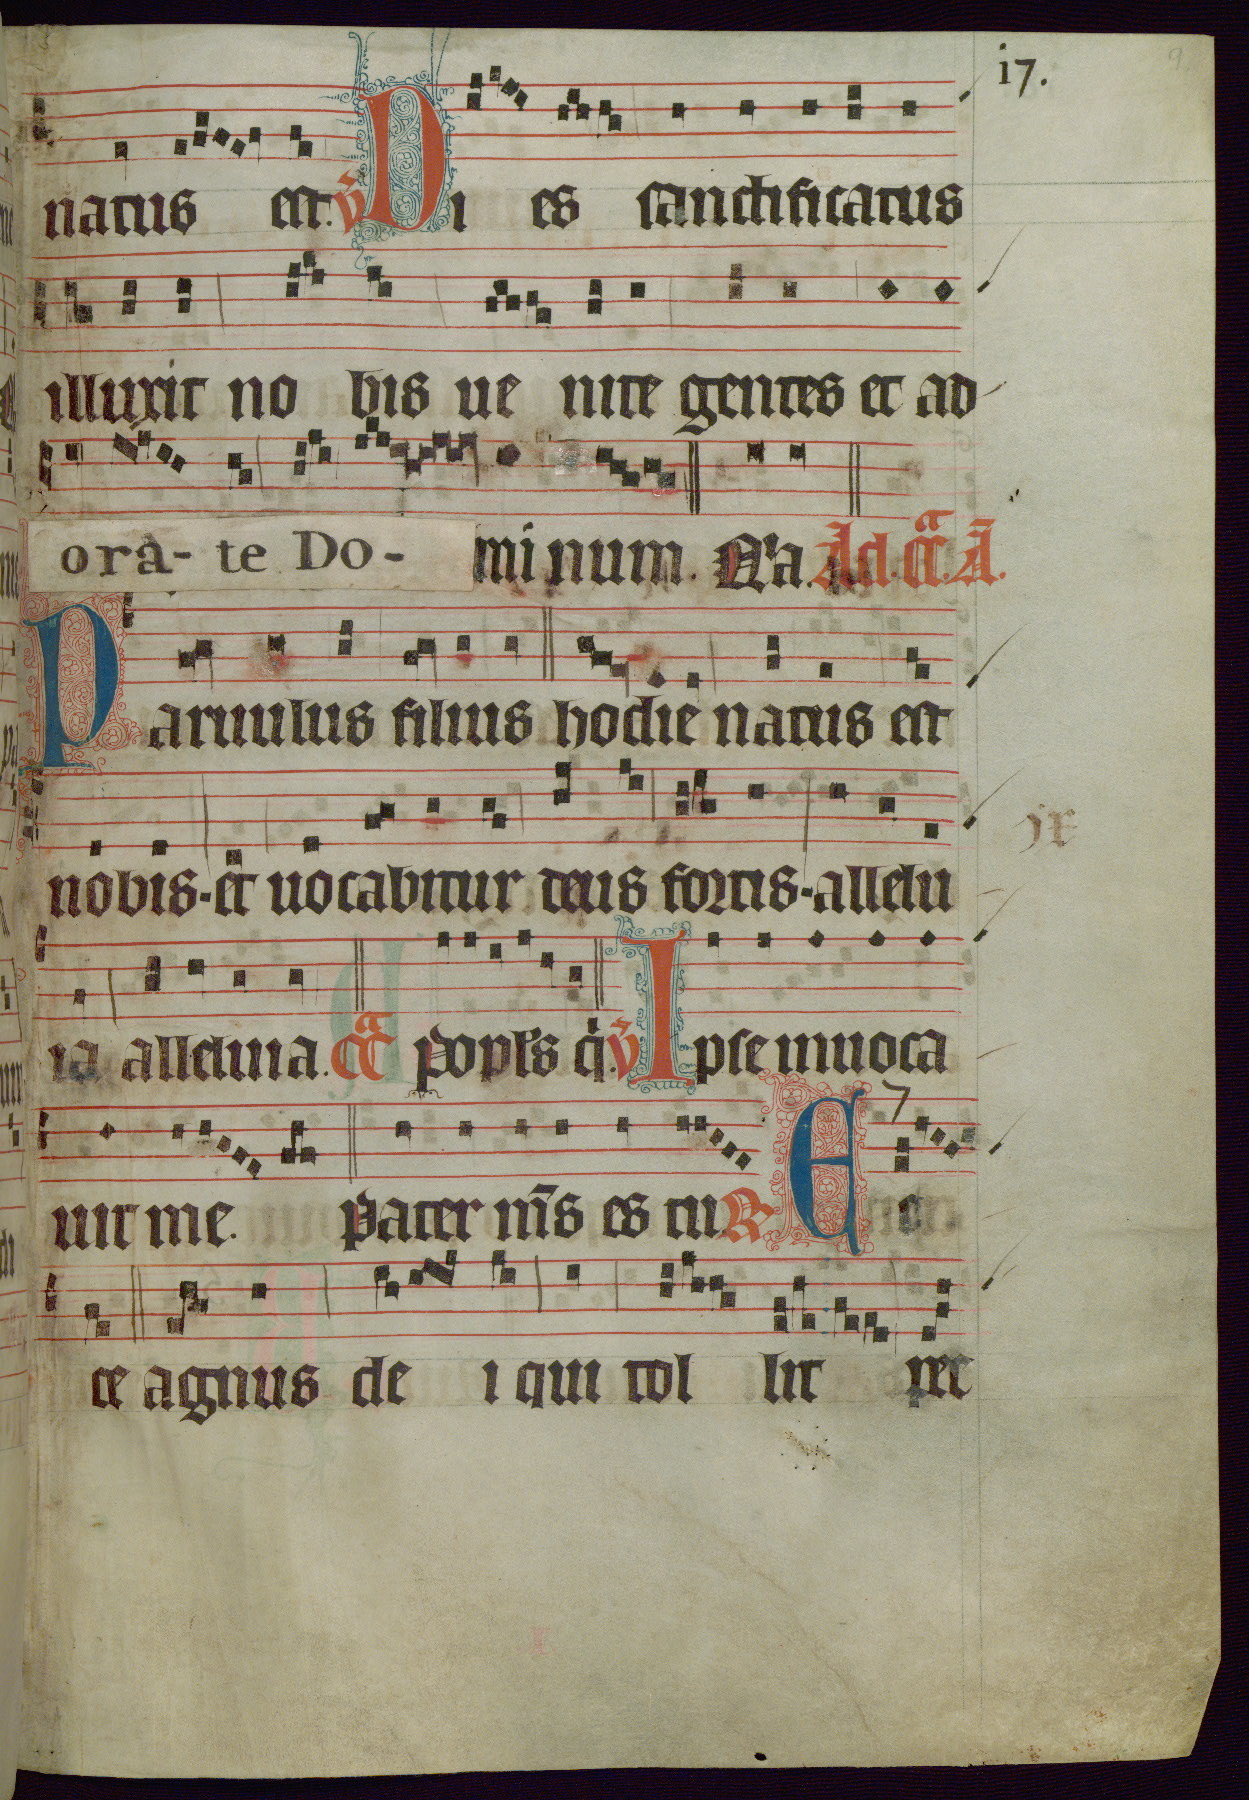 i7.
natus est. v̄ Di es sanctificatus
illuxit no bis ue nite gentes et ad
orà- te Do- mi num. Ad. A.
Paruulus filius hodie natus est
nobis. et uocabitur deus fortis. allelu
ix
ia alleluia. pop̄ls q̇. v̄ Ipse inuoca
uit me. pater m̄s es tu R E c
7
ce agnus de i qui tol lit pec